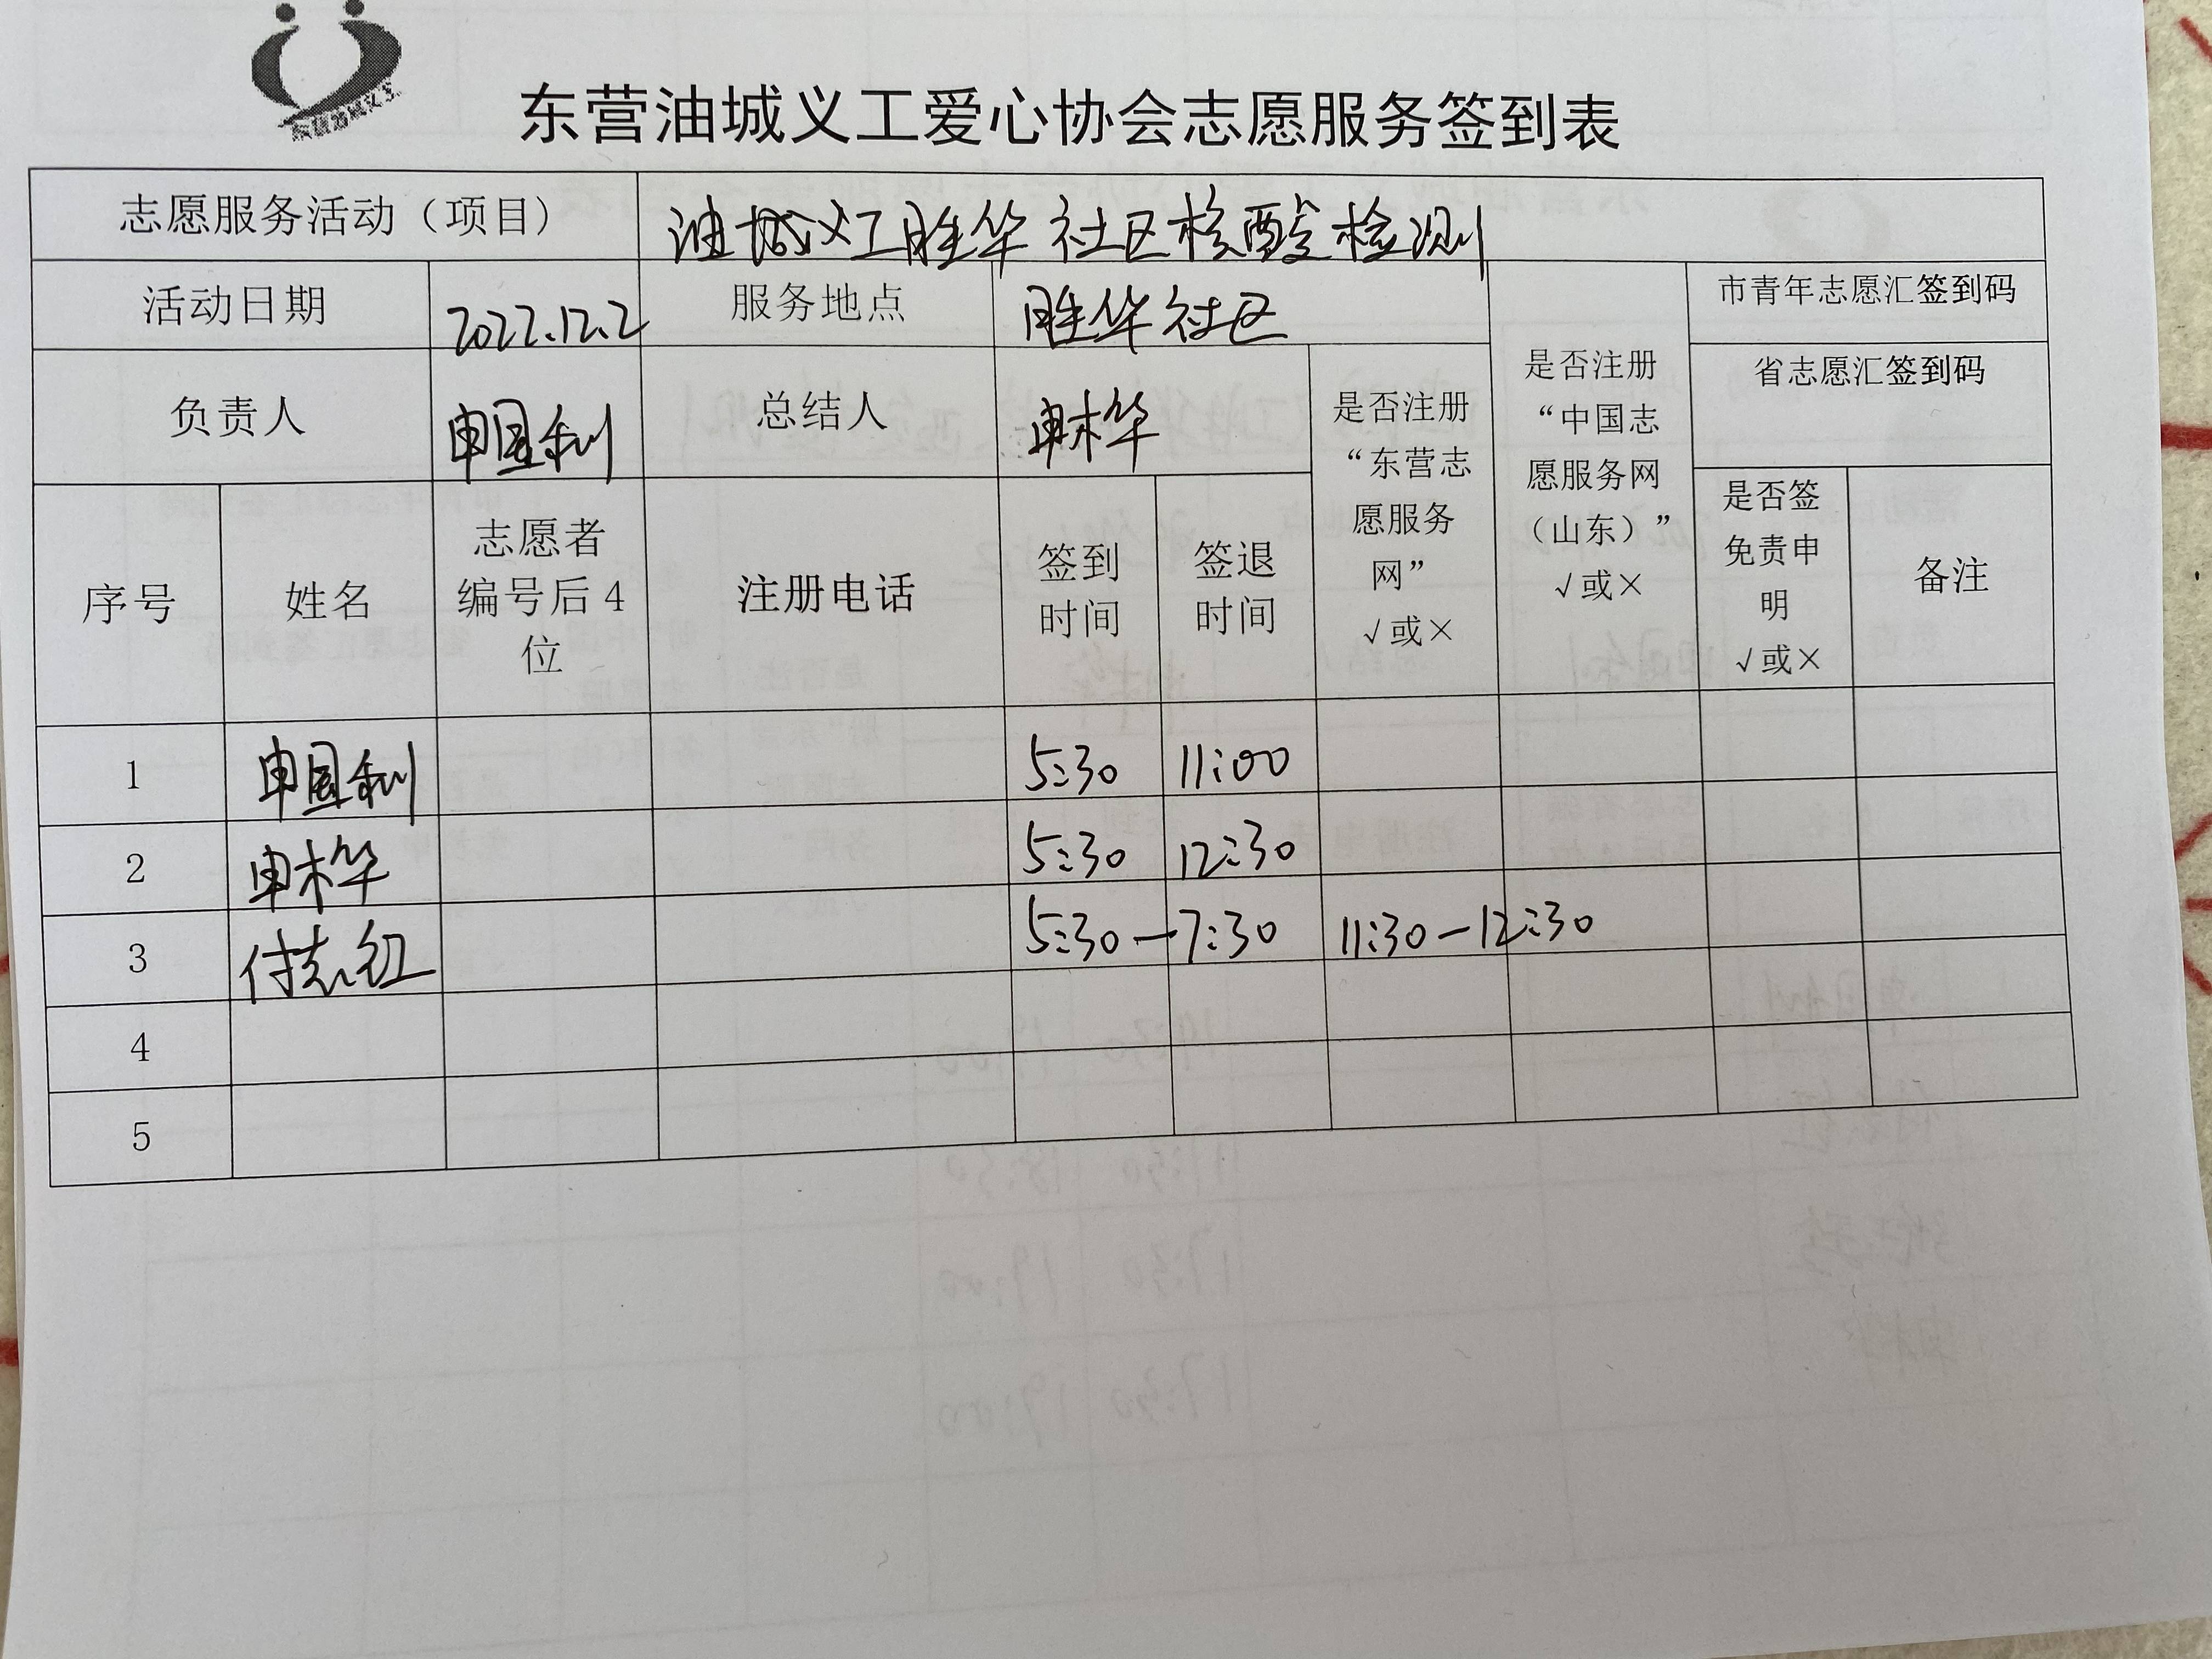 东营油城义工
东营油城义工爱心协会志愿服务签到表
志愿服务活动（项目） 油城义工胜华社区核酸检测
活动日期 2022.12.2 服务地点 胜华社区 市青年志愿汇签到码
负责人 申国利 总结人 申林华 省志愿汇签到码
是否注册
“东营志
愿服务
网”
√或×
是否注册
“中国志
愿服务网
（山东）”
√或×
序号 姓名
志愿者
编号后4
位
注册电话
签到
时间
签退
时间
是否签
免责申
明
√或×
备注
1 申国利 5:30 11:00
2 申林华 5:30 12:30
3 付志红 5:30—7:30 11:30—12:30
4
5